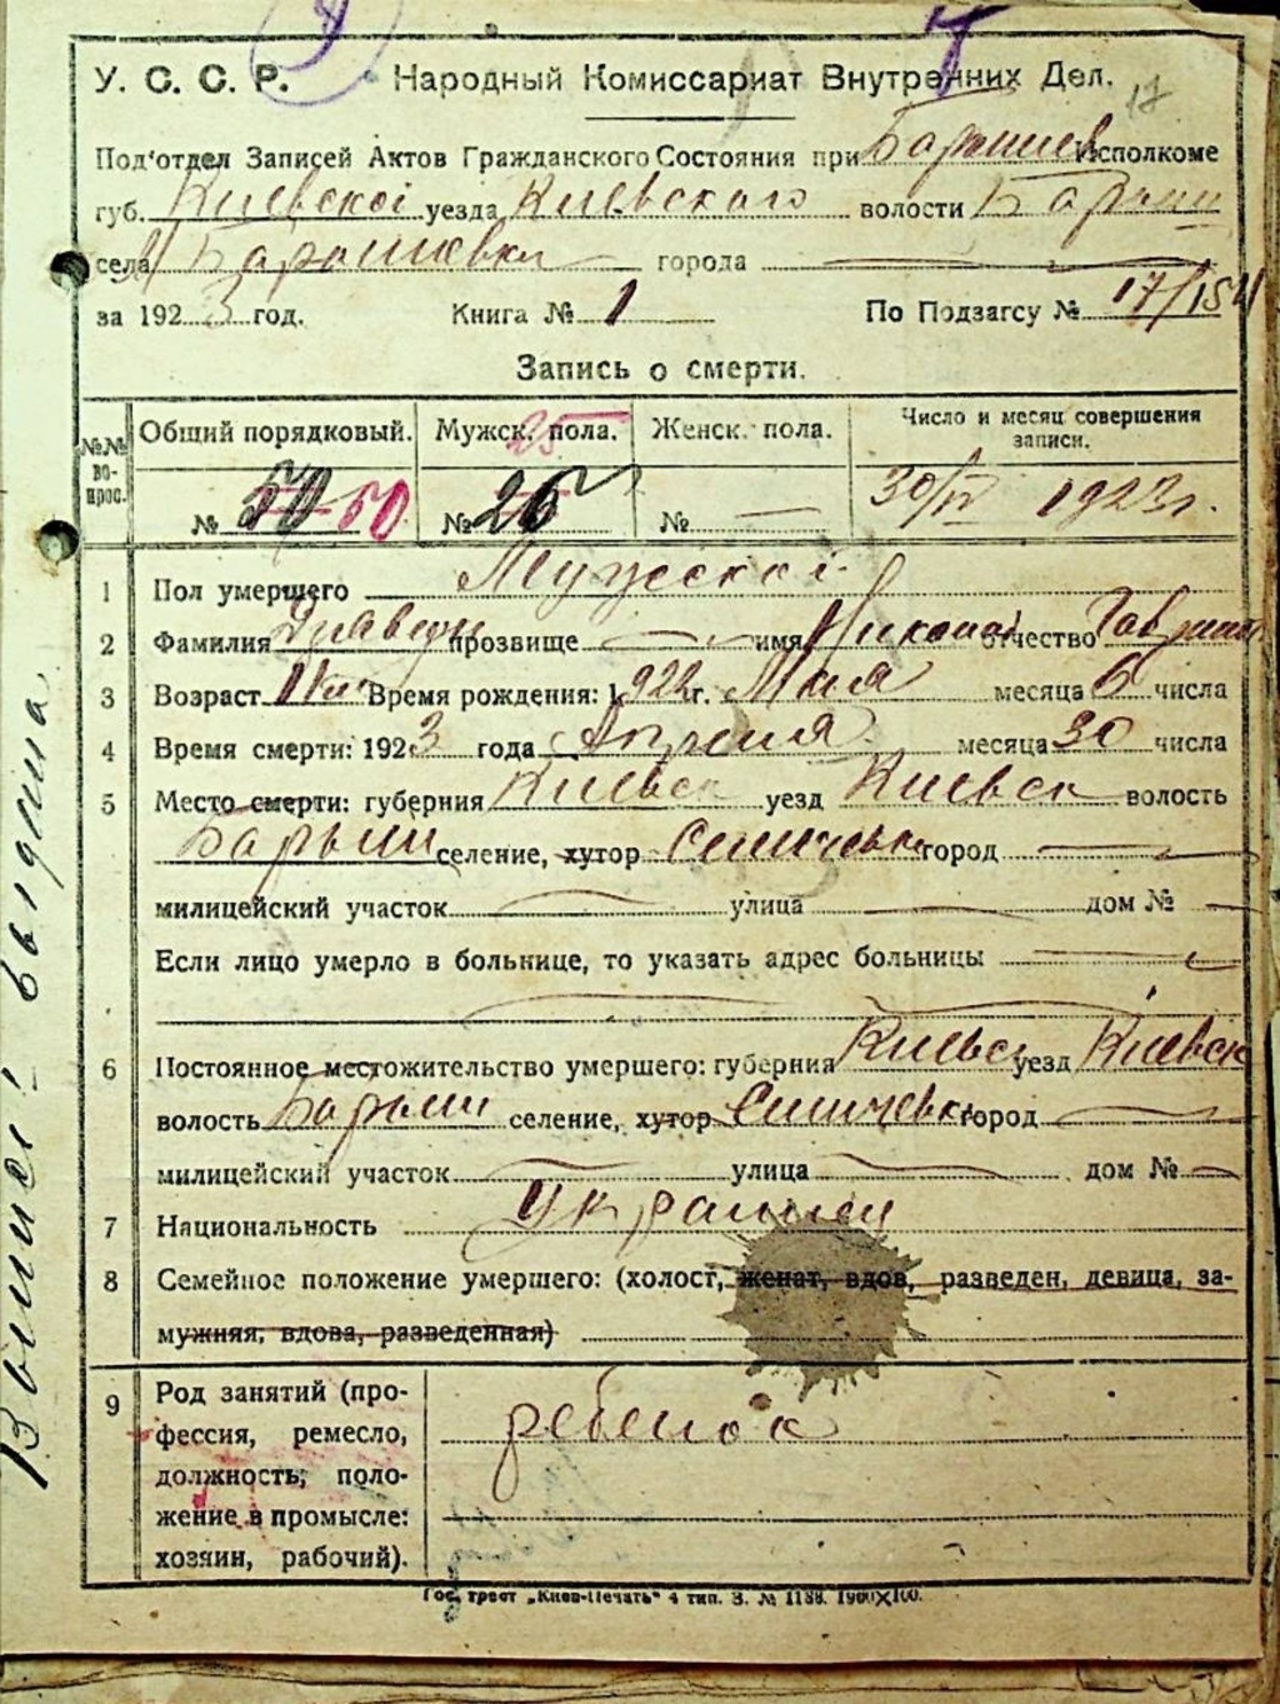 У. С. С. Р. Народный Комиссариат Внутренних Дел.
17
Под'отдел Записей Актов Гражданского Состояния при Барышев Исполкоме
губ. Киевской уезда Киевского волости Барыш
села Барышевки города
за 1923 год. Книга № 1 По Подзагсу № 17/154
Запись о смерти.
№№ вопрос. Общий порядковый. Мужск. пола. Женск. пола. Число и месяц совершения записи.
25
№ 50 № № 30/IV 1923г.
1 Пол умершего Мужской
2 Фамилия прозвище имя Николай отчество
3 Возраст Время рождения: 1922г. Мая месяца 6 числа
4 Время смерти: 1923 года Апреля месяца 30 числа
5 Место смерти: губерния Киевск уезд Киевск волость
Барыш селение, хутор Сеничевка город
милицейский участок улица дом №
Если лицо умерло в больнице, то указать адрес больницы
6 Постоянное местожительство умершего: губерния Киевск уезд Киевск
волость Барыш селение, хутор Сеничевка город
милицейский участок улица дом №
7 Национальность Украинец
8 Семейное положение умершего: (холост, женат, вдов, разведен, девица, за-
мужняя, вдова, разведенная)
9 Род занятий (про-
фессия, ремесло,
должность, поло-
жение в промысле:
хозяин, рабочий).
ребенок
Гос. трест „Киев-Печать" 4 тип. З. № 1188. 1900X100.